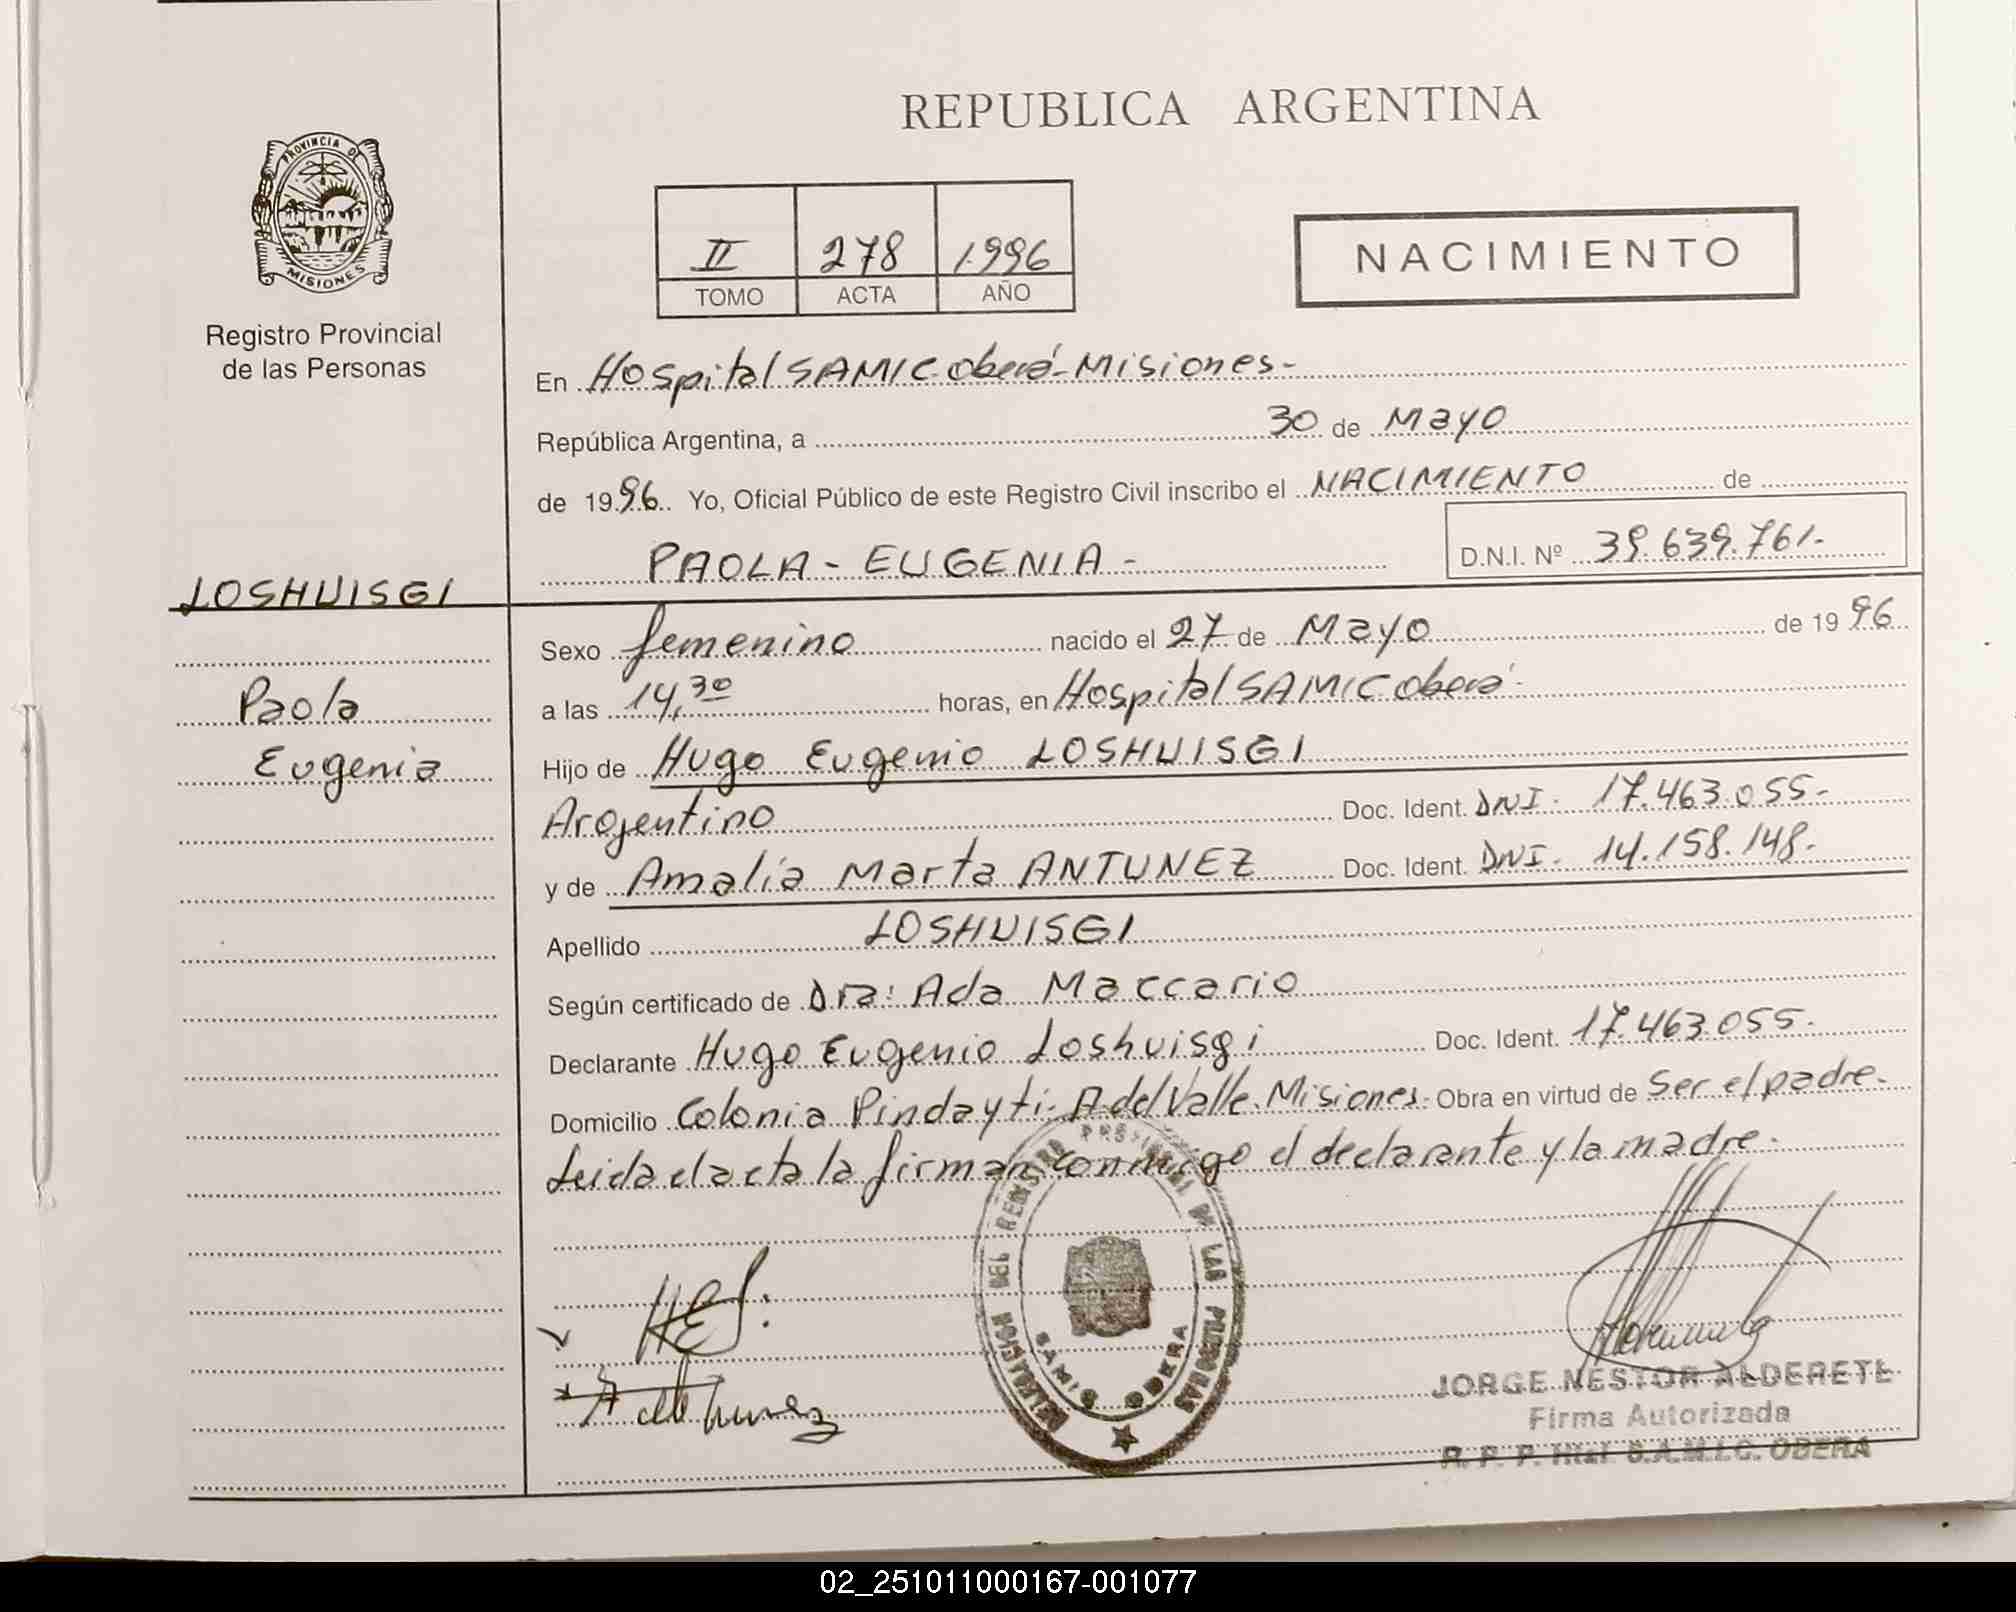 REPUBLICA ARGENTINA
PROVINCIA DE
MISIONES
Registro Provincial
de las Personas
II 278 1.996
TOMO ACTA AÑO
NACIMIENTO
En Hospital SAMIC oberá - Misiones -
República Argentina, a 30 de Mayo
de 1996. Yo, Oficial Público de este Registro Civil inscribo el NACIMIENTO de
PAOLA - EUGENIA - D.N.I. Nº 39.639.761.-
LOSHUISGI
Paola
Eugenia
Sexo femenino nacido el 27 de Mayo de 1996
a las 14,30 horas, en Hospital SAMIC oberá -
Hijo de Hugo Eugenio LOSHUISGI
Argentino Doc. Ident. DNI. 17.463.055.-
y de Amalia Marta ANTUNEZ Doc. Ident. DNI. 14.158.148.-
Apellido LOSHUISGI
Según certificado de Dra: Ada Maccario
Declarante Hugo Eugenio Loshuisgi Doc. Ident. 17.463.055.-
Domicilio Colonia Pindayti. A del Valle. Misiones. Obra en virtud de Ser el padre.-
Leida el acta la firman conmigo el declarante y la madre.-
DELEGACION DEL REGISTRO PROVINCIAL DE LAS PERSONAS
SAMIC OBERA
HEL:
A Antunez
JORGE NESTOR ALDERETE
Firma Autorizada
R. P. P. Htal. S.A.M.I.C. OBERA
02_251011000167-001077